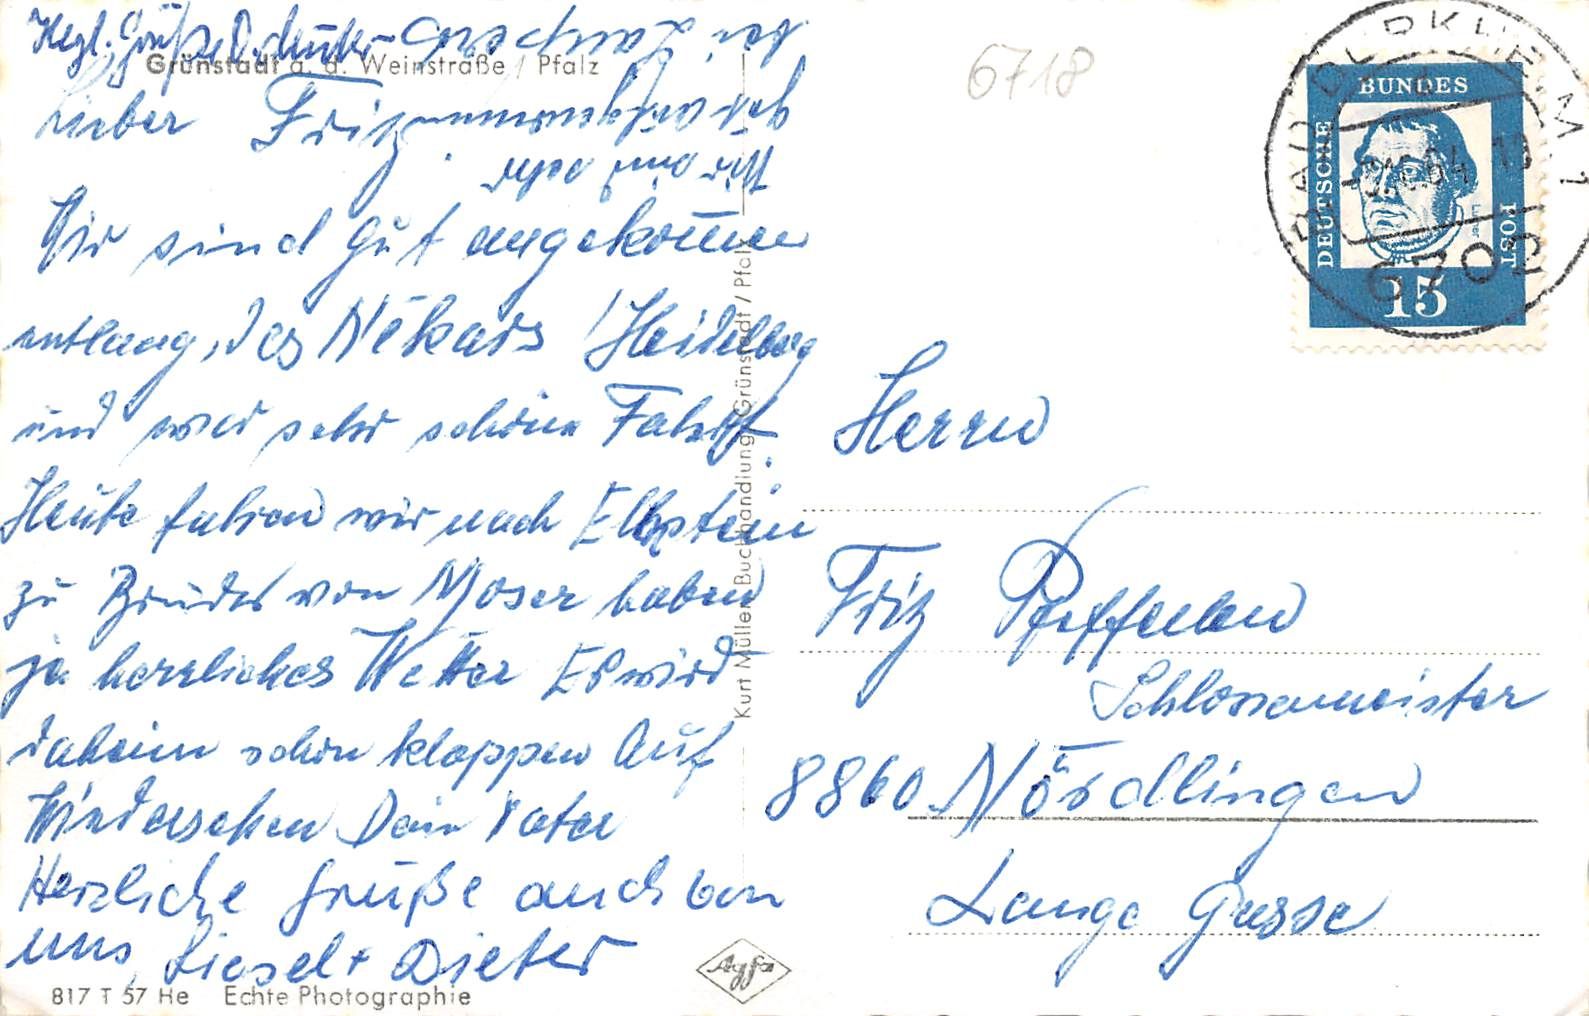 Hrzl. Grüße
Grünstadt a. d. Weinstraße / Pfalz
Lieber Fritz
Wir sind gut angekommen
entlang, des Nekars /Heidelberg
und war sehr schöne Fahrt.
Heute fahren wir nach
zu Bruder von Moser haben
ja herrliches Wetter Es wird
daheim schon klappen Auf
Wiedersehen Dein Vater
Herzliche Grüße auch von
uns, Liesel + Dieter
817 T 57 He Echte Photographie
Kurt Müller, Buchhandlung, Grünstadt / Pfalz
Agfa
6718
DEUTSCHE BUNDES POST
15
BAD DÜRKHEIM 1
6702
Herrn
Fritz
Schlossermeister
8860 Nördlingen
Lange Gasse